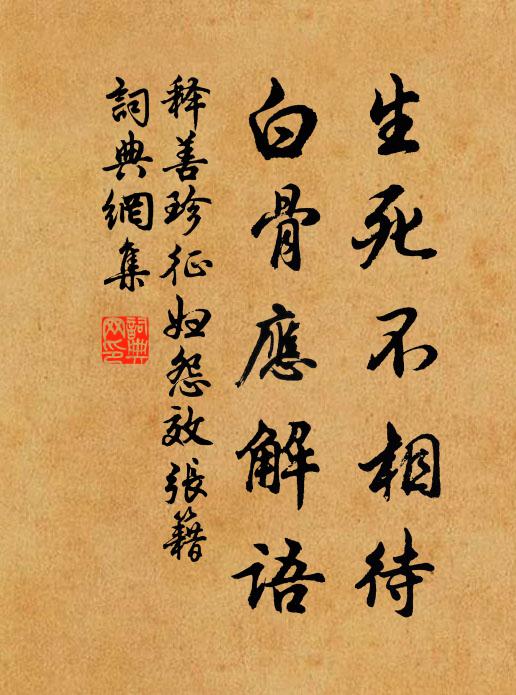 生死不相待
白骨應解語
释善珍征妇怨效張籍
詞典網集
詞典
网印